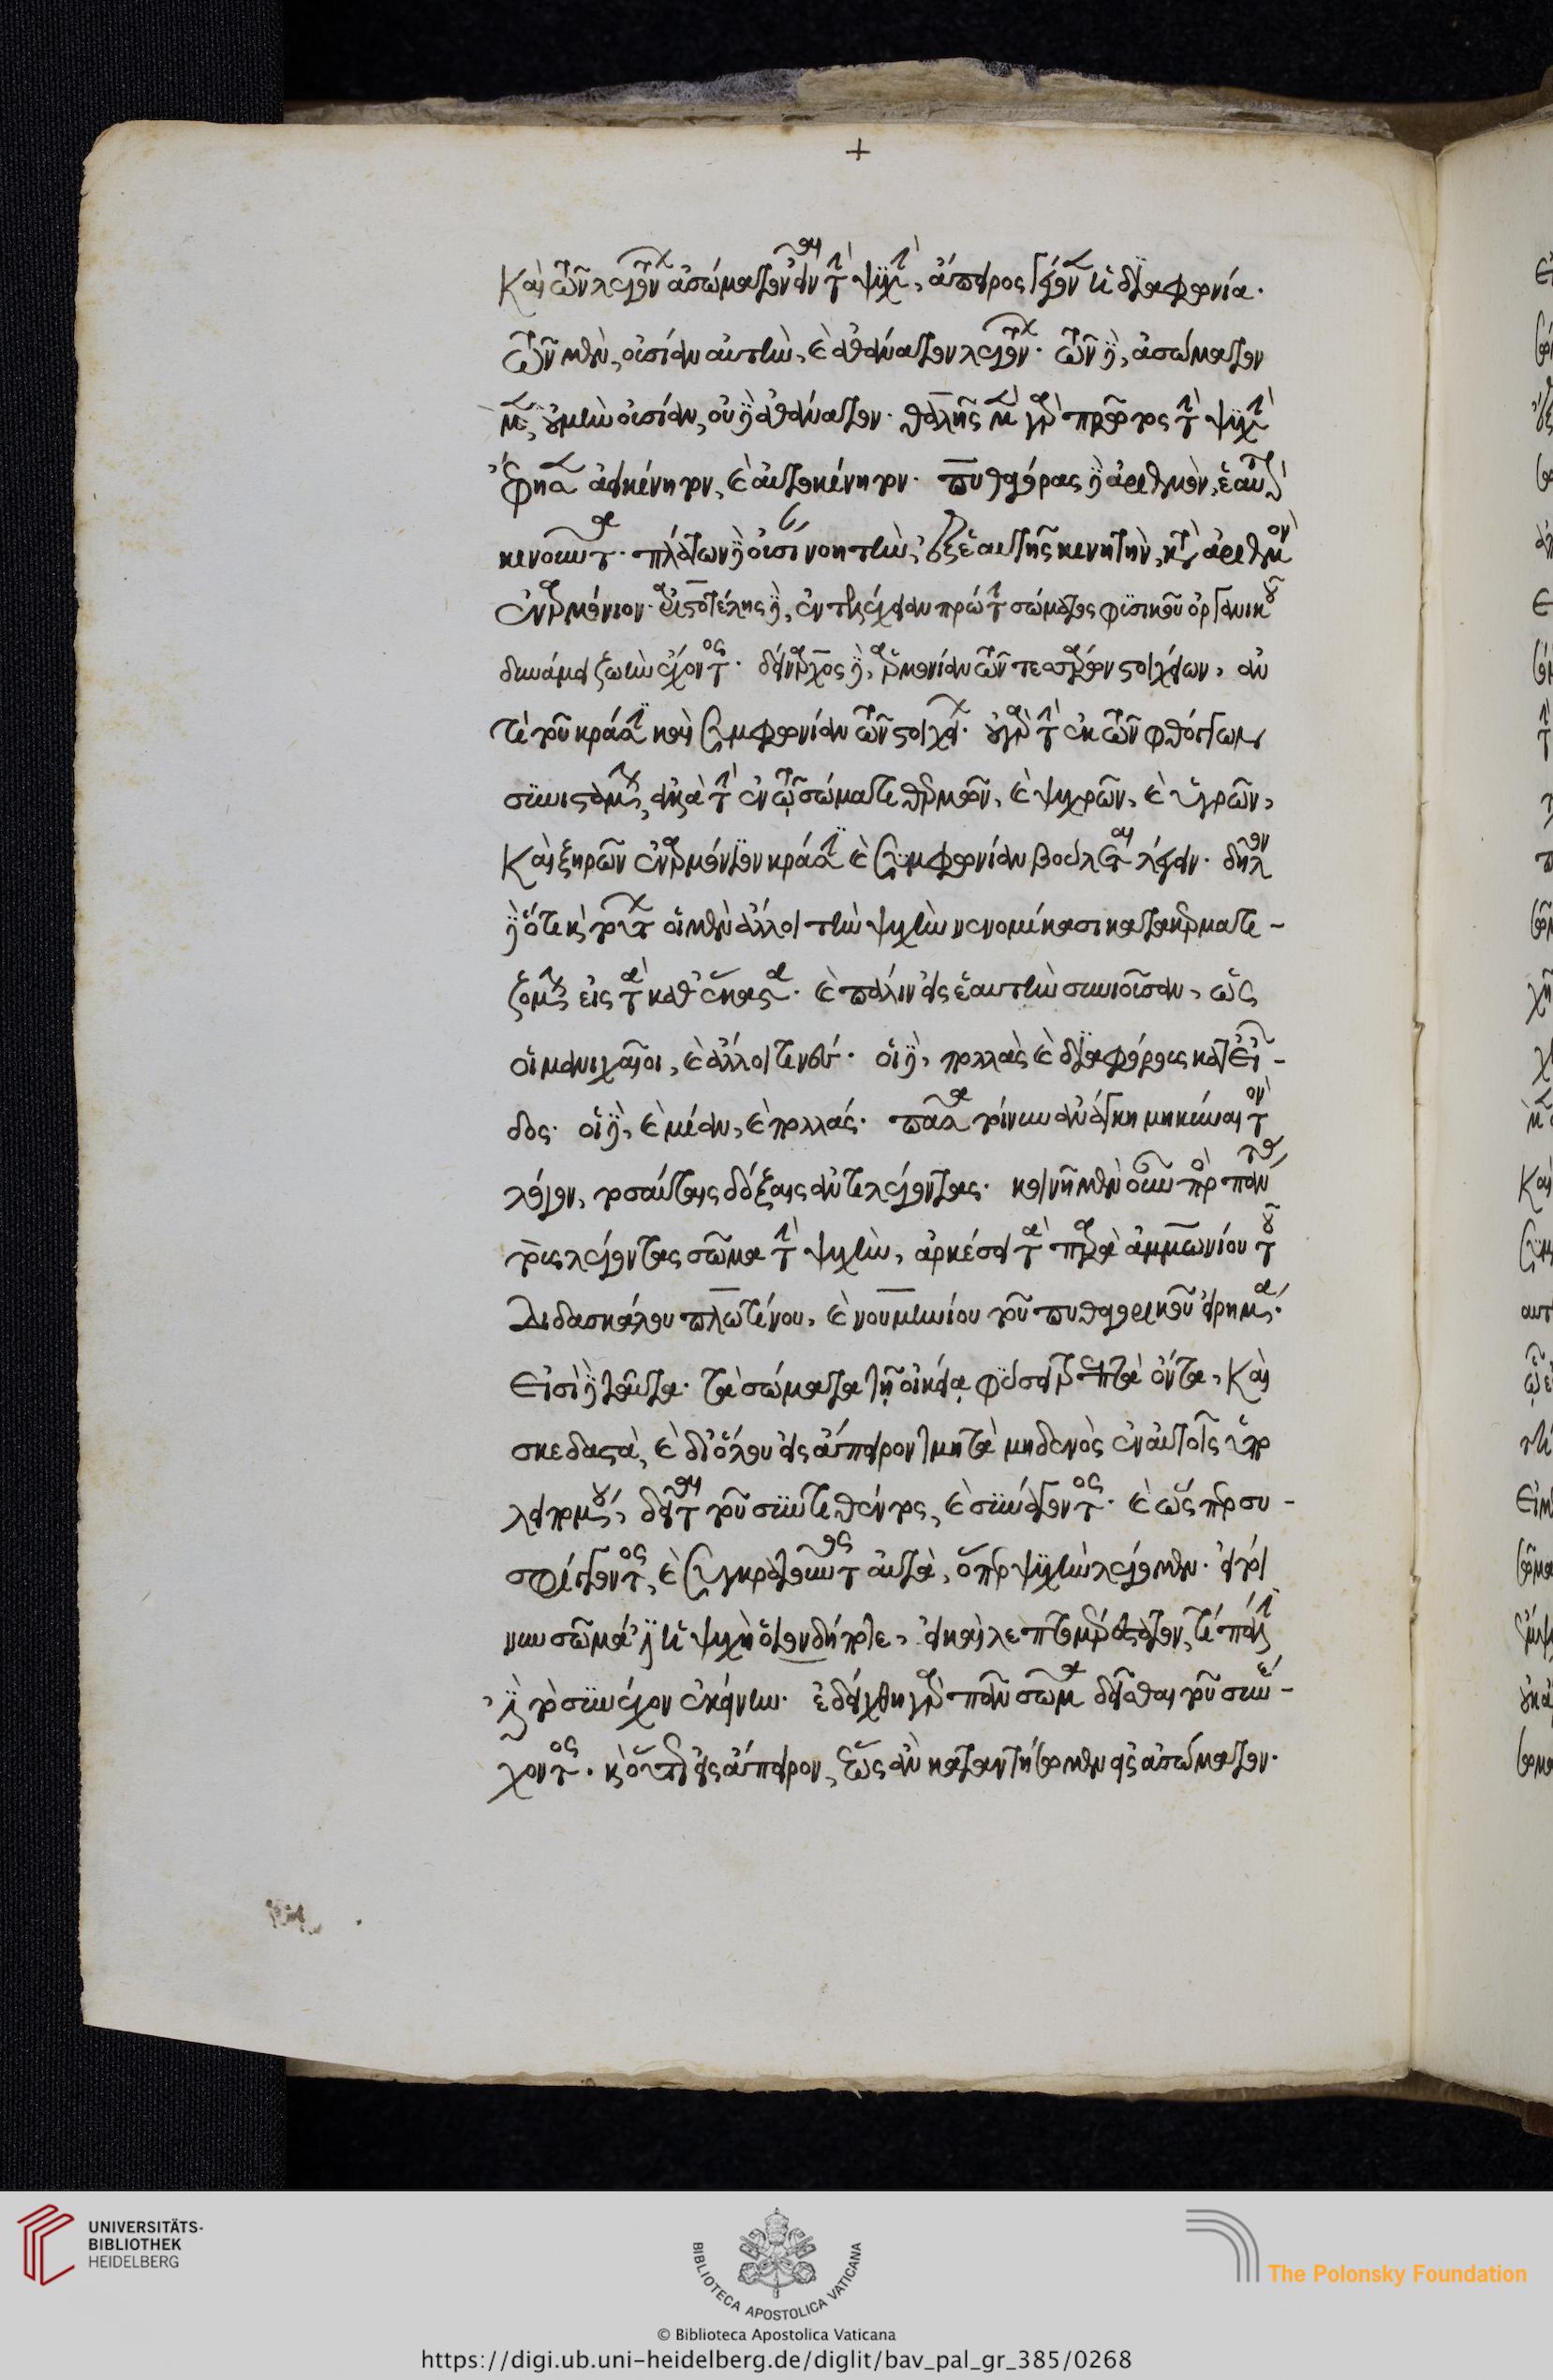 Καὶ τῶν λεγόντων ἀσώματον εἶναι τὴν ψυχὴν, ἄπειρος γέγονεν ἡ διαφωνία.
τῶν μὲν, οὐσίαν αὐτὴν, καὶ ἀθάνατον λεγόντων. τῶν δὲ, ἀσώματον
μὲν, οὐ μὴν οὐσίαν, οὐδὲ ἀθάνατον. θαλῆς μὲν γὰρ πρῶτος τὴν ψυχὴν
ἔφησεν ἀεικίνητον, καὶ αὐτοκίνητον. πυθαγόρας δὲ ἀριθμὸν, ἑαυτὸν
κινοῦντα. πλάτων δὲ οὐσίαν νοητὴν, ἐξ ἑαυτῆς κινητὴν, κατὰ ἀριθμὸν
ἐναρμόνιον. ἀριστοτέλης δὲ, ἐντελέχειαν πρώτην σώματος φυσικοῦ ὀργανικοῦ
δυνάμει ζωὴν ἔχοντος. δείναρχος δὲ, ἁρμονίαν τῶν τεσσάρων στοιχείων, ἀν
τὶ τοῦ κρᾶσιν καὶ συμφωνίαν τῶν στοιχείων. οὐ γὰρ τὴν ἐκ τῶν φθόγγων
συνισταμένην, ἀλλὰ τὴν ἐν τῷ σώματι θερμῶν, καὶ ψυχρῶν, καὶ ὑγρῶν,
Καὶ ξηρῶν ἐναρμόνιον κρᾶσιν καὶ συμφωνίαν βούλεται λέγειν. δῆλον
δὲ ὅτι καὶ τούτων οἱ μὲν ἄλλοι τὴν ψυχὴν νενομίκασι κατακερματι-
ζομένην εἰς τὰ καθ' ἕκαστα. καὶ πάλιν εἰς ἑαυτὴν συνιοῦσαν, ὡς
οἱ μανιχαῖοι, καὶ ἄλλοι τινές. οἱ δὲ, πολλὰς καὶ διαφόρους κατ' εἶ-
δος. οἱ δὲ, καὶ μίαν, καὶ πολλάς. πᾶσα τοίνυν ἀνάγκη μηκῦναι τὸν
λόγον, τοσαύταις δόξαις ἀντιλέγοντας. κοινῇ μὲν οὖν πρὸς πάντας
τοὺς λέγοντας σῶμα τὴν ψυχὴν, ἀρκέσει τὰ παρὰ ἀμμωνίου τοῦ
Διδασκάλου πλωτίνου, καὶ νουμηνίου τοῦ πυθαγορικοῦ εἰρημένα.
Εἰσὶ δὲ ταῦτα. τὰ σώματα τῇ οἰκείᾳ φύσει τρεπτὰ ὄντα, Καὶ
σκεδαστὰ, καὶ δι' ὅλου εἰς ἄπειρον τμητὰ μηδενὸς ἐν αὐτοῖς ὑπο
λειπομένου, δεῖται τοῦ συντιθέντος, καὶ συνάγοντος. καὶ ὥσπερ συ-
σφίγγοντος, καὶ συγκρατοῦντος αὐτὰ, ὅπερ ψυχὴν λέγομεν. εἰ τοί
νυν σῶμά ἐστιν ἡ ψυχὴ οἷον δήποτε, εἰ καὶ λεπτομερέστατον, τί πάλιν
ἐστὶ τὸ συνέχον ἐκείνην. ἐδείχθη γὰρ πᾶν σῶμα δεῖσθαι τοῦ συνέ-
χοντος. καὶ οὕτως εἰς ἄπειρον, ἕως ἂν καταντήσωμεν εἰς ἀσώματον.
UNIVERSITÄTS-
BIBLIOTHEK
HEIDELBERG
BIBLIOTECA APOSTOLICA VATICANA
The Polonsky Foundation
© Biblioteca Apostolica Vaticana
https://digi.ub.uni-heidelberg.de/diglit/bav_pal_gr_385/0268